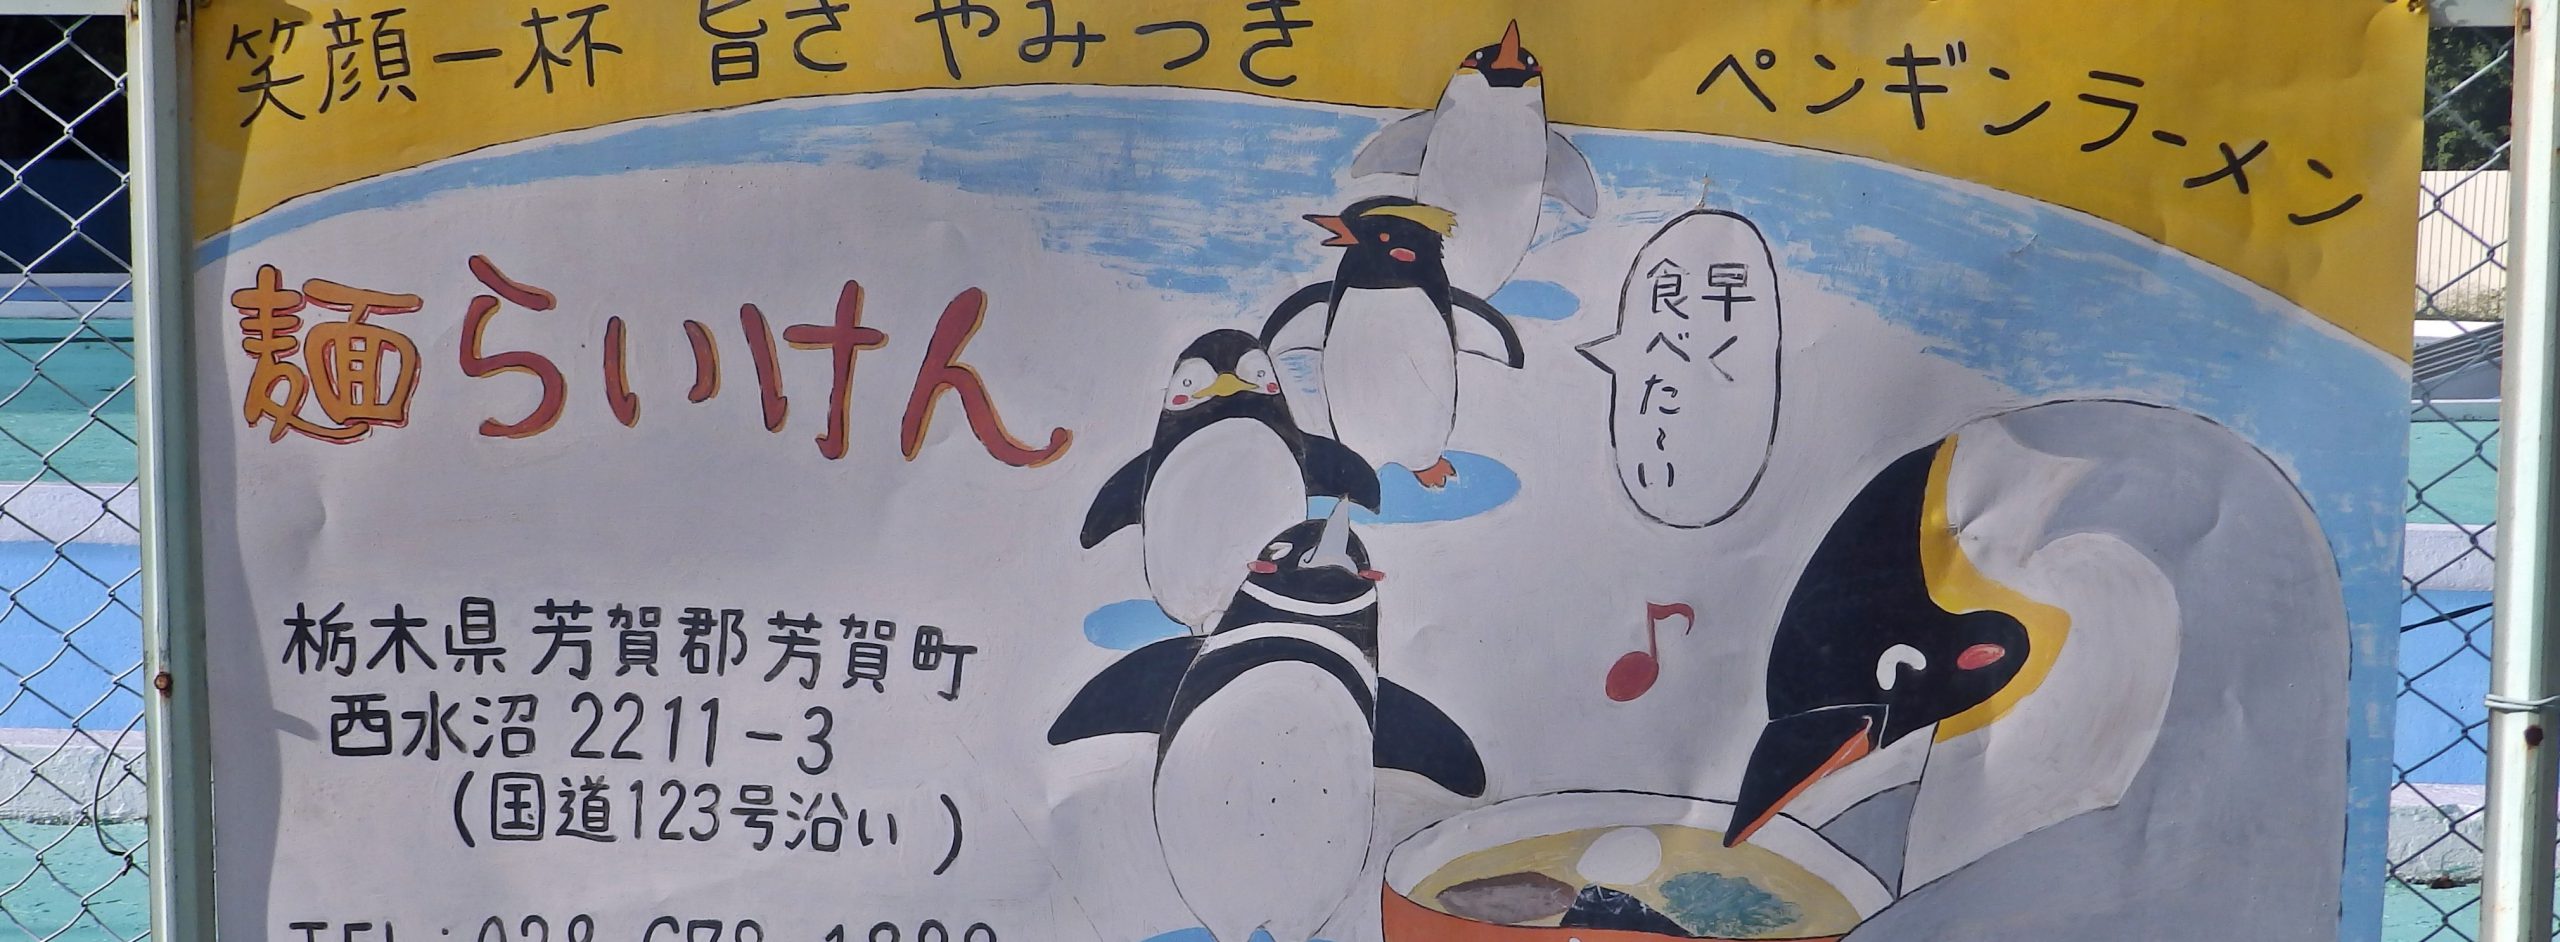 笑顔一杯 旨さ やみつき
ペンギンラーメン
麺らいけん
早く
食べた～い
栃木県芳賀郡芳賀町
西水沼 2211-3
(国道123号沿い)
TEL:028